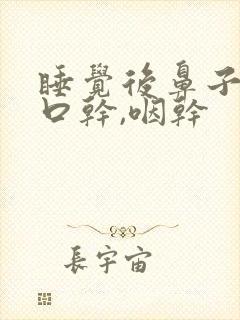 睡覺後鼻子
口幹,咽幹
長宇宙